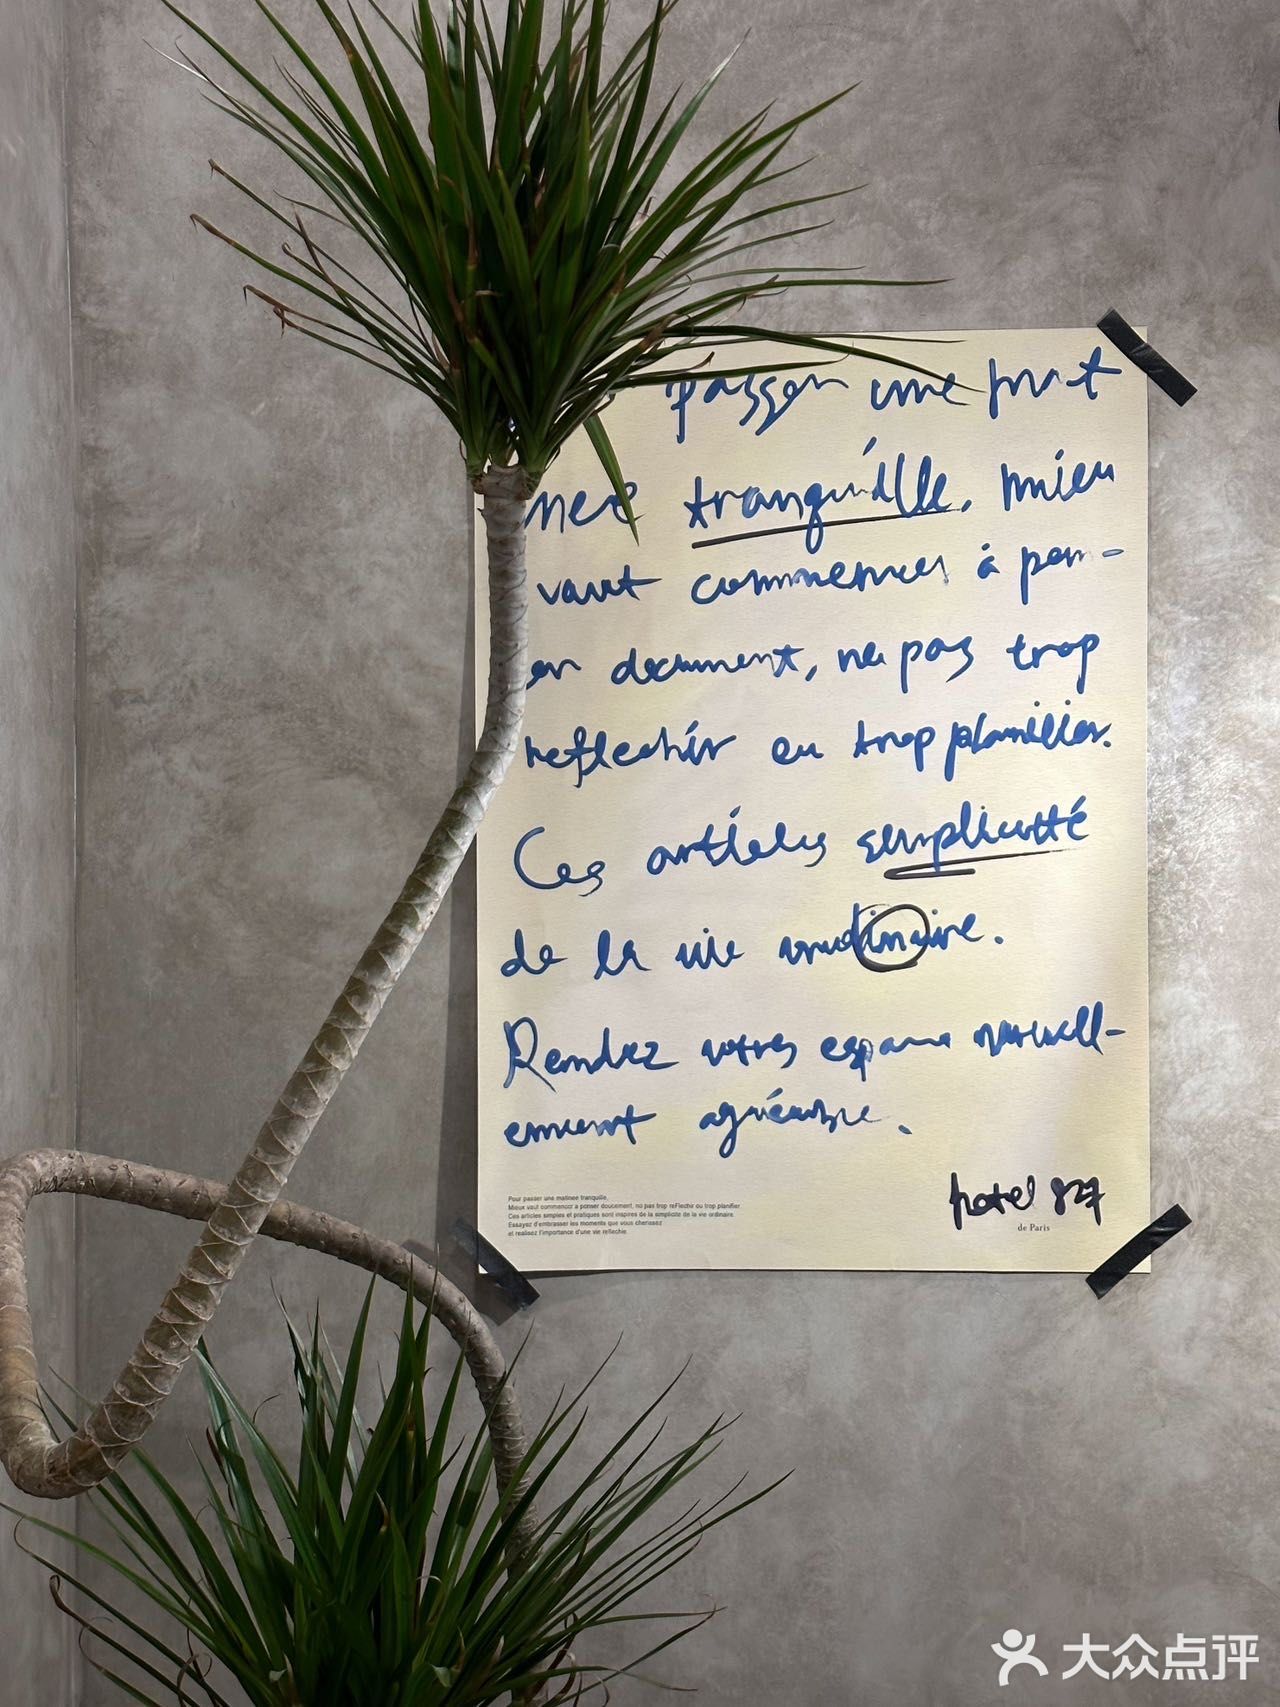 passer une mat
nee tranquille. mieu
vaut commencer à pen-
er docement, ne pas trop
reflechir ou trop planifier.
Ces articles simplicité
de la vie ordinaire.
Rendez votres espace
ement agréable.
hotel 827
de Paris
Pour passer une matinee tranquille.
Mieux vaut commencer a penser doucement, no pas trop reFlechir ou trop planifier
Ces articles simples et pratiques sont inspires de la simplicite de la vie ordinaire.
Essayez d'embrasser les moments que vous cherissez
et realisez l'importance d'une vie reflechie.
大众点评